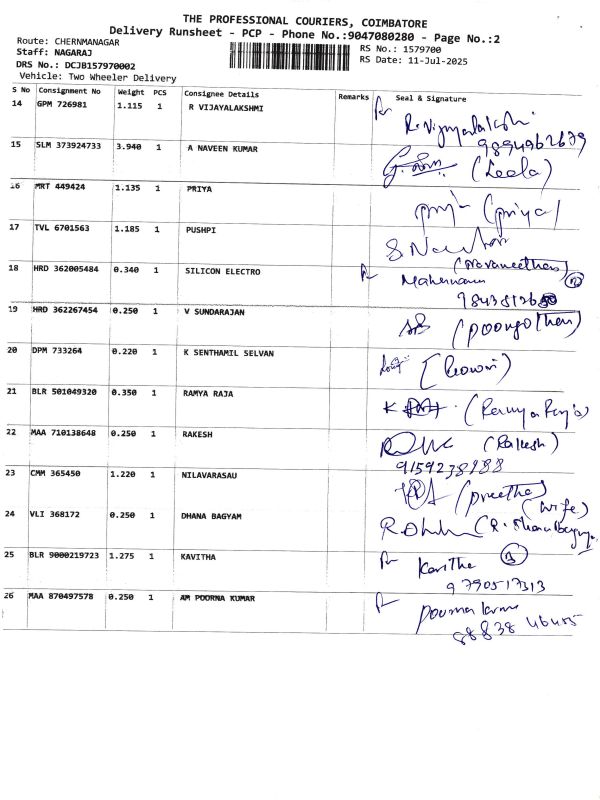 THE PROFESSIONAL COURIERS, COIMBATORE
Delivery Runsheet - PCP - Phone No.:9047080280 - Page No.:2
Route: CHERNMANAGAR
RS No.: 1579700
Staff: NAGARAJ
RS Date: 11-Jul-2025
DRS No.: DCJB157970002
Vehicle: Two Wheeler Delivery
S No Consignment No Weight PCS Consignee Details Remarks Seal & Signature
14 GPM 726981 1.115 1 R VIJAYALAKSHMI R. Vijayalakshmi
9894962679
15 SLM 373924733 3.940 1 A NAVEEN KUMAR (Leela)
16 MRT 449424 1.135 1 PRIYA (priya)
17 TVL 6701563 1.185 1 PUSHPI
(Navaneethan)
18 HRD 362005484 0.340 1 SILICON ELECTRO
19 HRD 362267454 0.250 1 V SUNDARAJAN
20 DPM 733264 0.220 1 K SENTHAMIL SELVAN (Gowri)
21 BLR 501049320 0.350 1 RAMYA RAJA (Ramya Raja)
22 MAA 710138648 0.250 1 RAKESH (Rakesh)
23 CMM 365450 1.220 1 NILAVARASAU (preetha)
(wife)
24 VLI 368172 0.250 1 DHANA BAGYAM
25 BLR 9000219723 1.275 1 KAVITHA Kavitha
9790517313
26 MAA 870497578 0.250 1 AM POORNA KUMAR